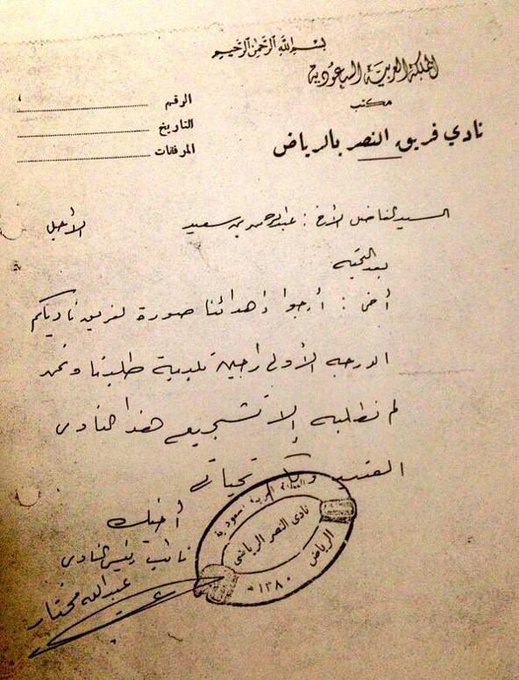 بسم الله الرحمن الرحيم
المملكة العربية السعودية
مكتب
نادي فريق النصر بالرياض
الرقم
التاريخ
المرفقات
السيد الفاضل الأخ : عبدالرحمن بن سعيد الأجل
بعد التحية
أخي : أرجوا إهدائنا صورة لفريق ناديكم
الدرجه الأولى راجين تلبية طلبنا ونحن
لم نطلبه إلا تشجيع هذا النادي
الفتي ولكم تحياتي
أخيك
نائب رئيس النادي
عبدالله مختار
المملكة العربية السعودية
نادي النصر الرياضي
الرياض
١٣٨٠